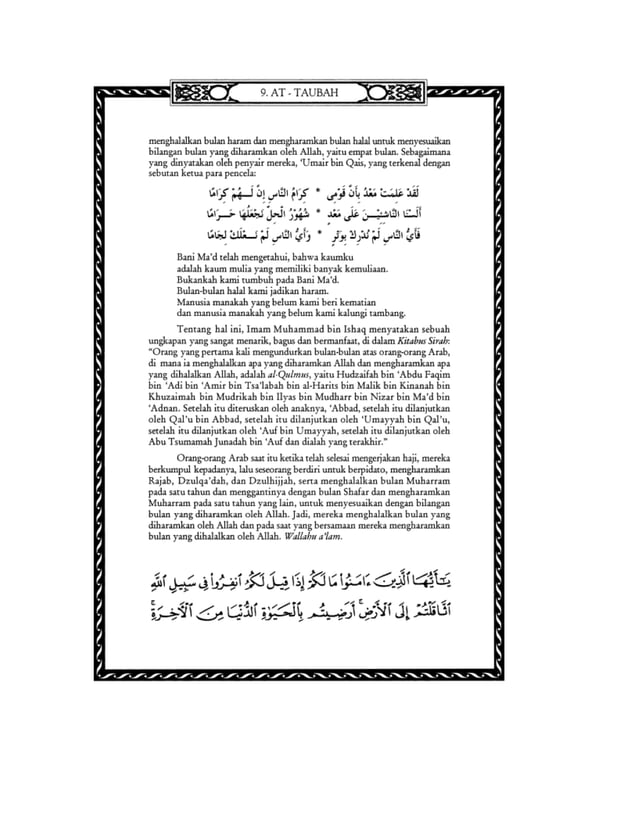 9. AT - TAUBAH
menghalalkan bulan haram dan mengharamkan bulan halal untuk menyesuaikan
bilangan bulan yang diharamkan oleh Allah, yaitu empat bulan. Sebagaimana
yang dinyatakan oleh penyair mereka, ‘Umair bin Qais, yang terkenal dengan
sebutan ketua para pencela:
لَقَدْ عَلِمَتْ مَعْدُ بِأَنَّ قَوْمِى * كِرَامُ النَّاسِ إِنَّ لَـهُمْ كِرَامًا
أَلَسْنَا النَّاسِئِيْـنَ عَلَى مَعْدٍ * شُهُوْرُ الْحِلِّ نَجْعَلُهَا حَـرَامًا
فَأَيُّ النَّاسِ لَمْ نُدْرِكْ بِوِتْرٍ * وَأَيُّ النَّاسِ لَمْ نَـعْلُكْ لِجَامًا
Bani Ma’d telah mengetahui, bahwa kaumku
adalah kaum mulia yang memiliki banyak kemuliaan.
Bukankah kami tumbuh pada Bani Ma’d.
Bulan-bulan halal kami jadikan haram.
Manusia manakah yang belum kami beri kematian
dan manusia manakah yang belum kami kalungi tambang.
Tentang hal ini, Imam Muhammad bin Ishaq menyatakan sebuah
ungkapan yang sangat menarik, bagus dan bermanfaat, di dalam Kitabus Sirah:
“Orang yang pertama kali mengundurkan bulan-bulan atas orang-orang Arab,
di mana ia menghalalkan apa yang diharamkan Allah dan mengharamkan apa
yang dihalalkan Allah, adalah al-Qulmus, yaitu Hudzaifah bin ‘Abdu Faqim
bin ‘Adi bin ‘Amir bin Tsa‘labah bin al-Harits bin Malik bin Kinanah bin
Khuzaimah bin Mudrikah bin Ilyas bin Mudharr bin Nizar bin Ma’d bin
‘Adnan. Setelah itu diteruskan oleh anaknya, ‘Abbad, setelah itu dilanjutkan
oleh Qal’u bin Abbad, setelah itu dilanjutkan oleh ‘Umayyah bin Qal’u,
setelah itu dilanjutkan oleh ‘Auf bin Umayyah, setelah itu dilanjutkan oleh
Abu Tsumamah Junadah bin ‘Auf dan dialah yang terakhir.”
Orang-orang Arab saat itu ketika telah selesai mengerjakan haji, mereka
berkumpul kepadanya, lalu seseorang berdiri untuk berpidato, mengharamkan
Rajab, Dzulqa’dah, dan Dzulhijjah, serta menghalalkan bulan Muharram
pada satu tahun dan menggantinya dengan bulan Shafar dan mengharamkan
Muharram pada satu tahun yang lain, untuk menyesuaikan dengan bilangan
bulan yang diharamkan oleh Allah. Jadi, mereka menghalalkan bulan yang
diharamkan oleh Allah dan pada saat yang bersamaan mereka mengharamkan
bulan yang dihalalkan oleh Allah. Wallahu a’lam.
يَـٰٓأَيُّهَا ٱلَّذِينَ ءَامَنُوا۟ مَا لَكُمْ إِذَا قِيلَ لَكُمُ ٱنفِرُوا۟ فِى سَبِيلِ ٱللَّهِ
ٱثَّاقَلْتُمْ إِلَى ٱلْأَرْضِ ۚ أَرَضِيتُم بِٱلْحَيَوٰةِ ٱلدُّنْيَا مِنَ ٱلْـَٔاخِرَةِ ۚ